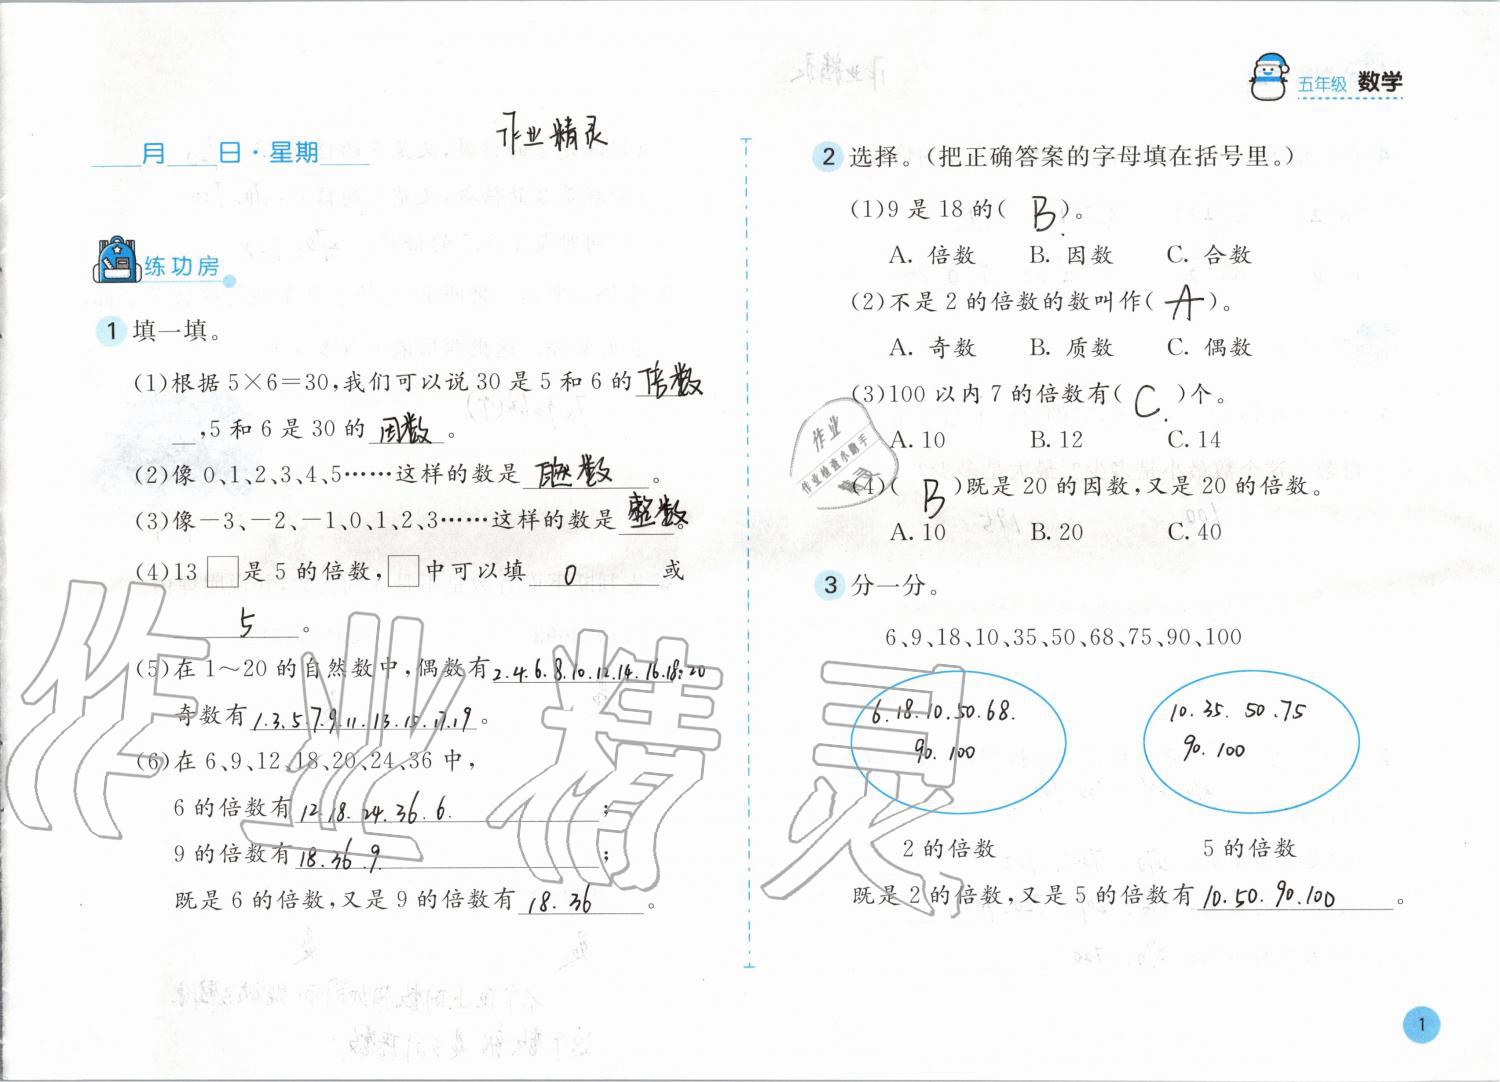 五年级 数学
作业精灵
月 日·星期
练功房
1 填一填。
(1)根据5×6=30,我们可以说30是5和6的倍数
,5和6是30的因数。
(2)像0、1、2、3、4、5……这样的数是自然数。
(3)像-3、-2、-1、0、1、2、3……这样的数是整数。
(4)13□是5的倍数,□中可以填 0 或
5。
(5)在1~20的自然数中,偶数有2.4.6.8.10.12.14.16.18.20
奇数有1.3.5.7.9.11.13.15.17.19。
(6)在6、9、12、18、20、24、36中,
6的倍数有12.18.24.36.6.;
9的倍数有18.36.9.;
既是6的倍数,又是9的倍数有18.36。
2 选择。(把正确答案的字母填在括号里。)
(1)9是18的( B )。
A. 倍数 B. 因数 C. 合数
(2)不是2的倍数的数叫作( A )。
A. 奇数 B. 质数 C. 偶数
(3)100以内7的倍数有( C )个。
A. 10 B. 12 C. 14
(4)( B )既是20的因数,又是20的倍数。
A. 10 B. 20 C. 40
3 分一分。
6、9、18、10、35、50、68、75、90、100
6.18.10.50.68.
90.100
10.35.50.75
90.100
2的倍数 5的倍数
既是2的倍数,又是5的倍数有10.50.90.100。
作业精灵
作业
作业检查小助手
1